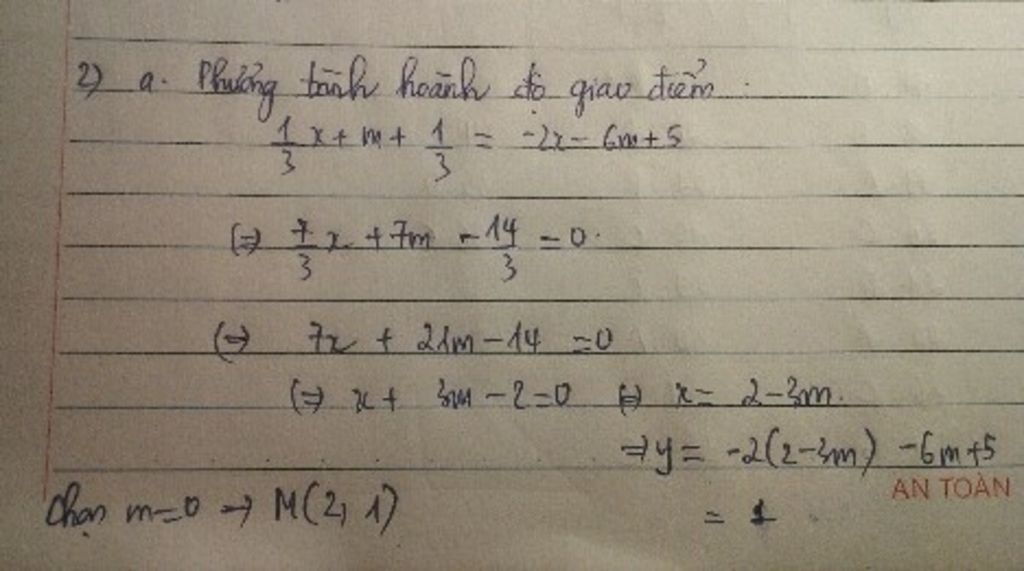 2) a. Phương trình hoành độ giao điểm :
1/3 x + m + 1/3 = -2x - 6m + 5
(=) 7/3 x + 7m - 14/3 = 0.
(=) 7x + 21m - 14 = 0
(=) x + 3m - 2 = 0 (=) x = 2 - 3m.
=> y = -2(2 - 3m) - 6m + 5
AN TOÀN
Chọn m = 0 => M(2, 1)
= 1